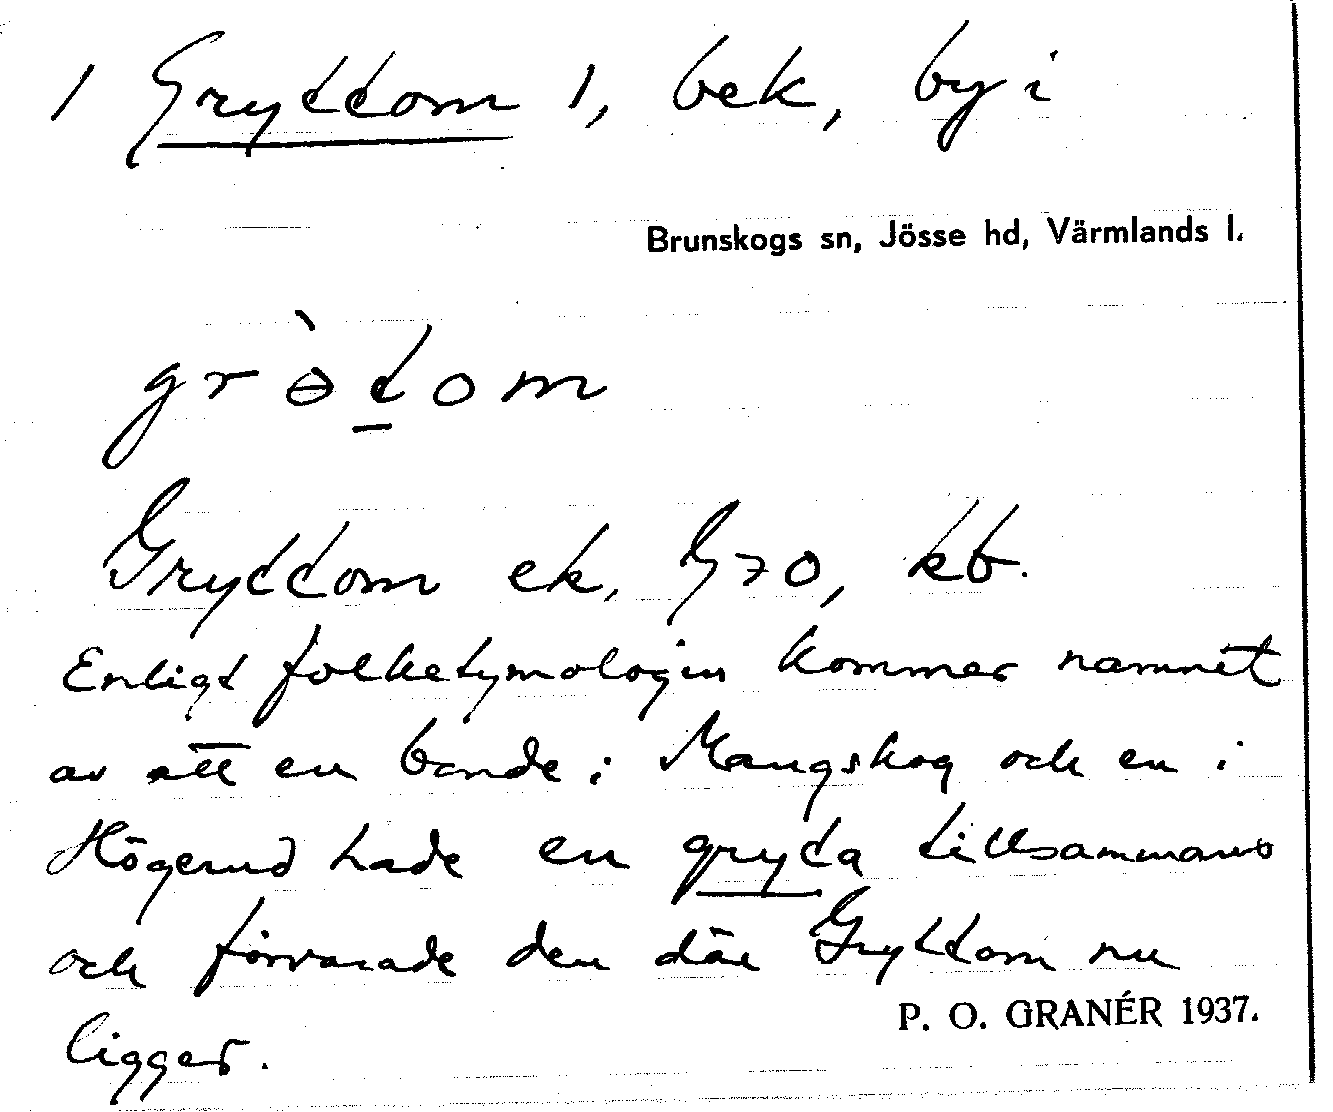 1 Gryttom 1, bek, by i
Brunskogs sn, Jösse hd, Värmlands l.
grɵ̀tom
Gryttom ek, G70, kb.
Enligt folketymologin kommer namnet
av att en bonde i Mangskog och en i
Högerud hade en gryta tillsammans
och förvarade den där Gryttom nu
ligger.
P. O. GRANÉR 1937.